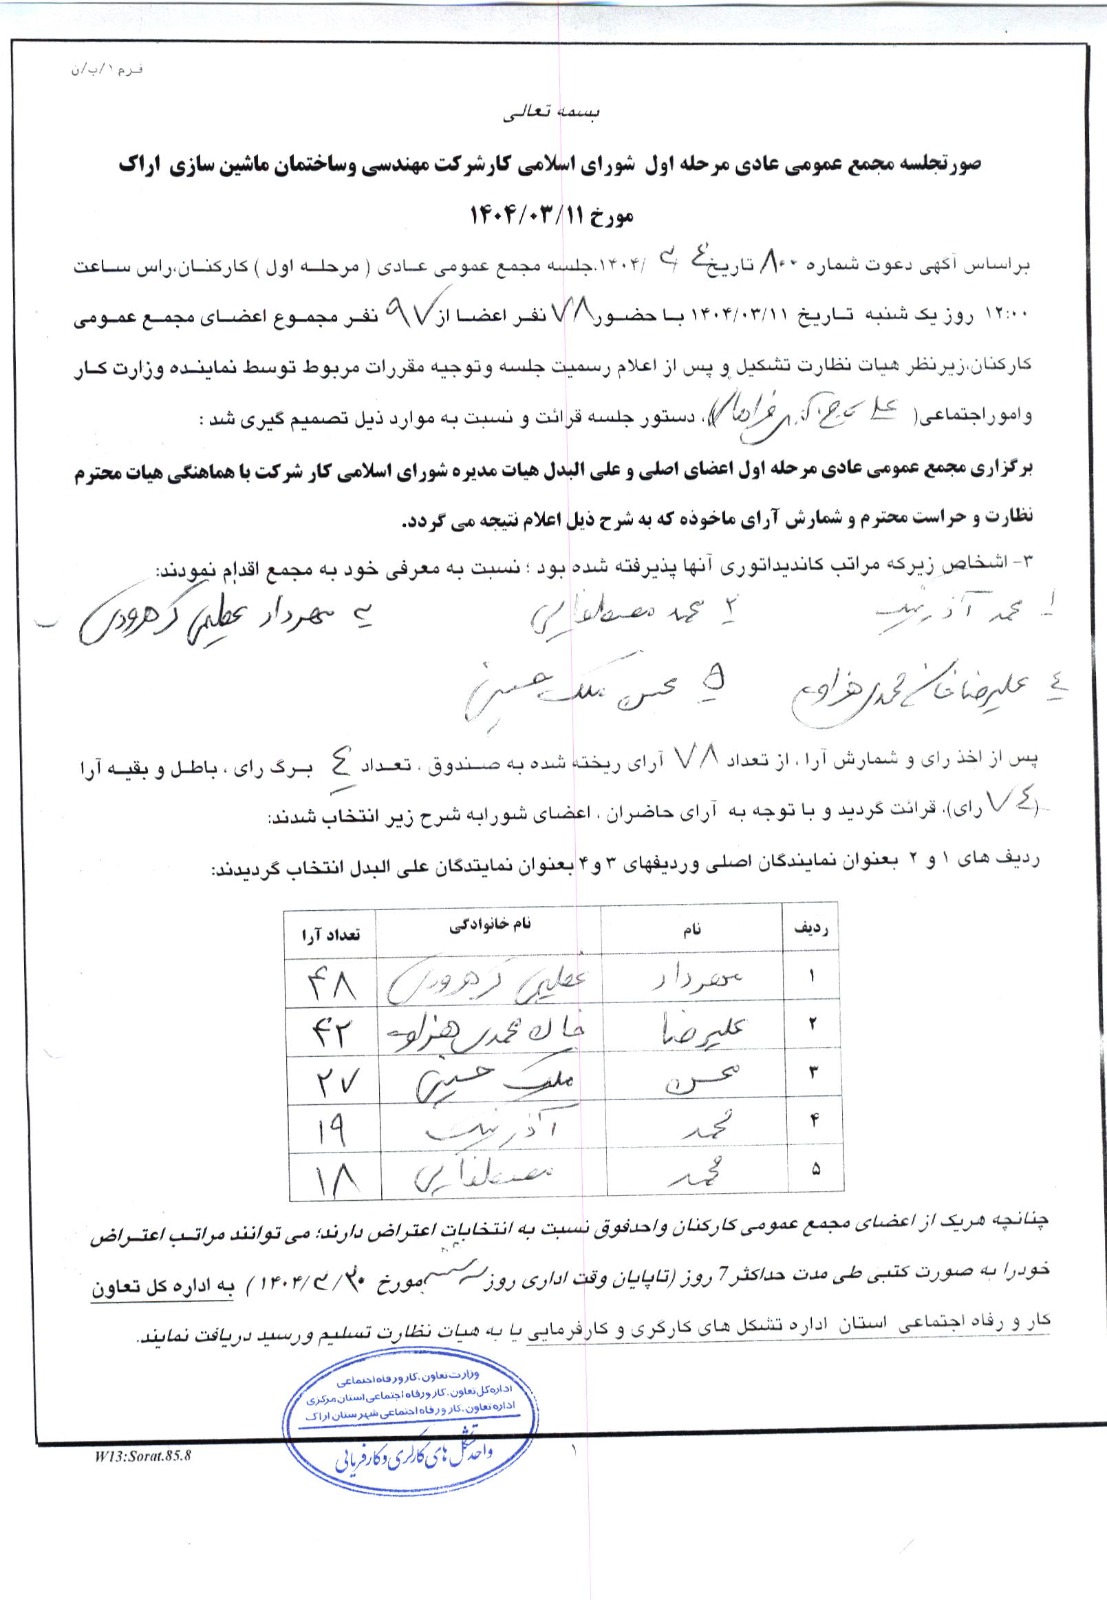 فرم ۱/ب/ن
بسمه تعالی
صورتجلسه مجمع عمومی عادی مرحله اول شورای اسلامی کارشرکت مهندسی وساختمان ماشین سازی اراک
مورخ ۱۴۰۴/۰۳/۱۱
براساس آگهی دعوت شماره ۸۰۰ تاریخ ۱۴۰۴/۳/۴،جلسه مجمع عمومی عادی ( مرحله اول ) کارکنان،راس ساعت
۱۲:۰۰ روز یک شنبه تاریخ ۱۴۰۴/۰۳/۱۱ با حضور ۷۸ نفر اعضا از ۹۷ نفر مجموع اعضای مجمع عمومی
کارکنان،زیرنظر هیات نظارت تشکیل و پس از اعلام رسمیت جلسه وتوجیه مقررات مربوط توسط نماینده وزارت کار
و اموراجتماعی( علی )، دستور جلسه قرائت و نسبت به موارد ذیل تصمیم گیری شد :
برگزاری مجمع عمومی عادی مرحله اول اعضای اصلی و علی البدل هیات مدیره شورای اسلامی کار شرکت با هماهنگی هیات محترم
نظارت و حراست محترم و شمارش آرای ماخوذه که به شرح ذیل اعلام نتیجه می گردد.
۳- اشخاص زیرکه مراتب کاندیداتوری آنها پذیرفته شده بود ؛ نسبت به معرفی خود به مجمع اقدام نمودند:
۱ محمد آذرنیک ۲ محمد مصطفایی ۳ مهرداد عظیمی کرهرودی
۴ علیرضا خان محمدی هزاوه ۵ محسن ملک حسینی
پس از اخذ رای و شمارش آرا ، از تعداد ۷۸ آرای ریخته شده به صندوق ، تعداد ۴ برگ رای ، باطل و بقیه آرا
(۷۴ رای)، قرائت گردید و با توجه به آرای حاضران ، اعضای شورابه شرح زیر انتخاب شدند:
ردیف های ۱ و ۲ بعنوان نمایندگان اصلی وردیفهای ۳ و۴ بعنوان نمایندگان علی البدل انتخاب گردیدند:
ردیف نام نام خانوادگی تعداد آرا
۱ مهرداد عظیمی کرهرودی ۴۸
۲ علیرضا خان محمدی هزاوه ۴۲
۳ محسن ملک حسینی ۲۷
۴ محمد آذرنیک ۱۹
۵ محمد مصطفایی ۱۸
چنانچه هریک از اعضای مجمع عمومی کارکنان واحدفوق نسبت به انتخابات اعتراض دارند؛ می توانند مراتب اعتراض
خودرا به صورت کتبی طی مدت حداکثر 7 روز (تاپایان وقت اداری روز مورخ ۱۴۰۴/۳/۲۰ ) به اداره کل تعاون
کار و رفاه اجتماعی استان اداره تشکل های کارگری و کارفرمایی یا به هیات نظارت تسلیم ورسید دریافت نمایند.
وزارت تعاون،کار ورفاه اجتماعی
اداره کل تعاون، کار ورفاه اجتماعی استان مرکزی
اداره تعاون، کار ورفاه اجتماعی شهرستان اراک
واحد تشکل های کارگری و کارفرمایی
۱
W13:Sorat.85.8